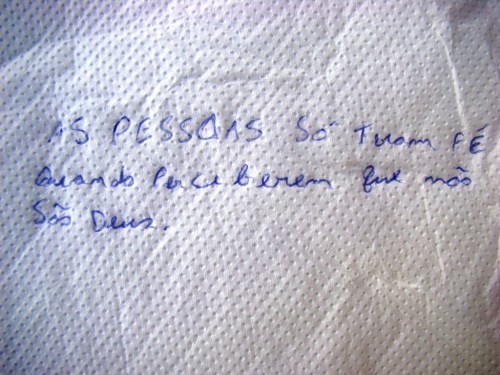 AS PESSOAS Só Teram FÉ
Quando Perceberem que nós
Sôs Deus.